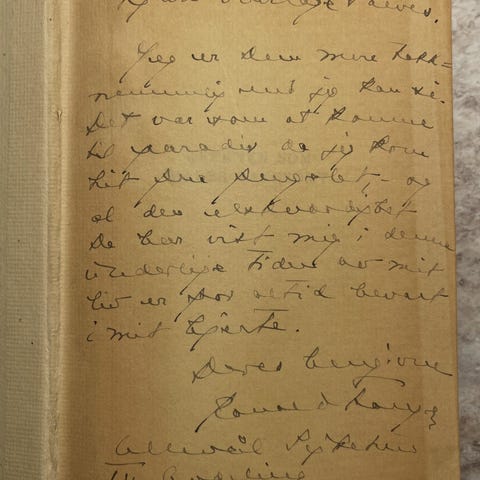 Kjære
Jeg er Dem mere takk=
nemmelig end jeg kan si.
Det var som at komme
til paradis da jeg kom
hit fra fengslet, – og
al den elskværdighet
De har vist mig i denne
underlige tiden av mit
liv er for altid bevart
i mit hjerte.
Deres hengivne
Ullevål Sykehus